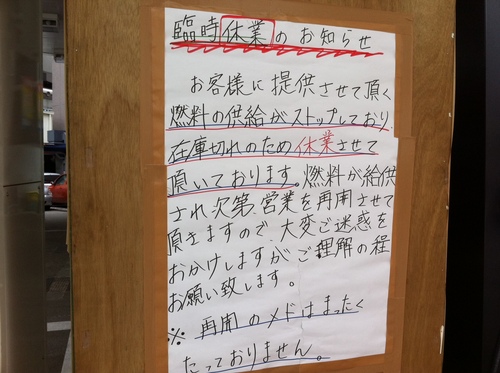 臨時休業のお知らせ
お客様に提供させて頂く
燃料の供給がストップしており
在庫切れのため休業させて
頂いております。燃料が給供
され次第、営業を再開させて
頂きますので、大変ご迷惑を
おかけしますがご理解の程
お願い致します。
※再開のメドはまったく
たっておりません。